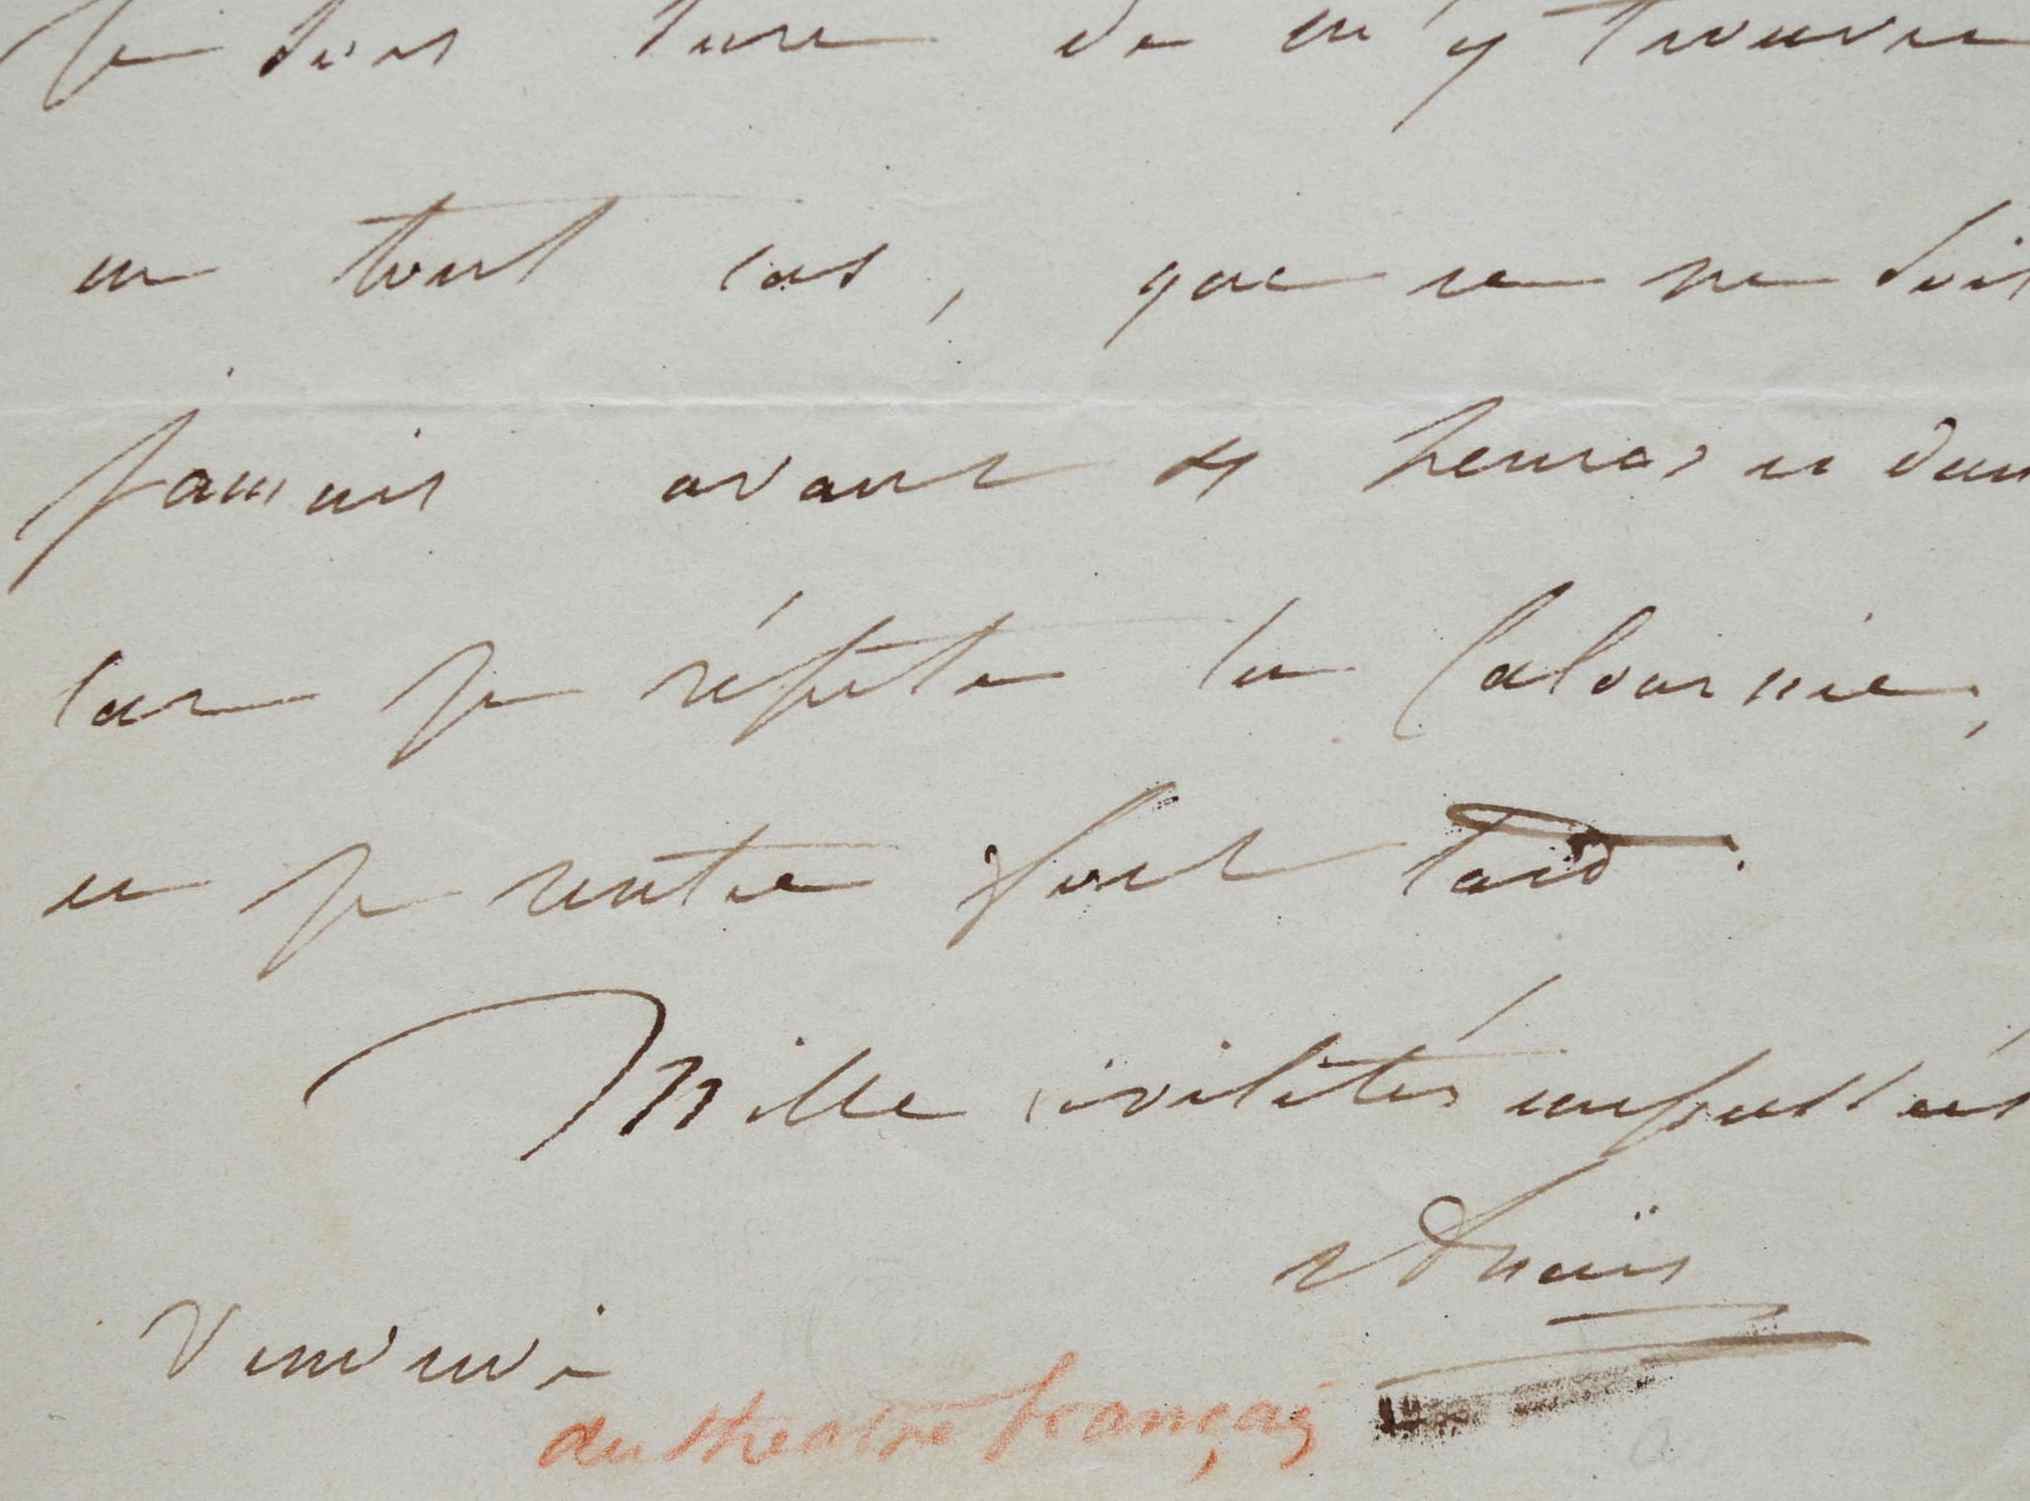 je suis sure de m'y trouver
en tout cas, que ce ne soit
jamais avant 4 heures et dem
car je répète la Calomnie,
et je rentre fort tard.
Mille civilités empressées
Anaïs
Vendredi
du theatre françai